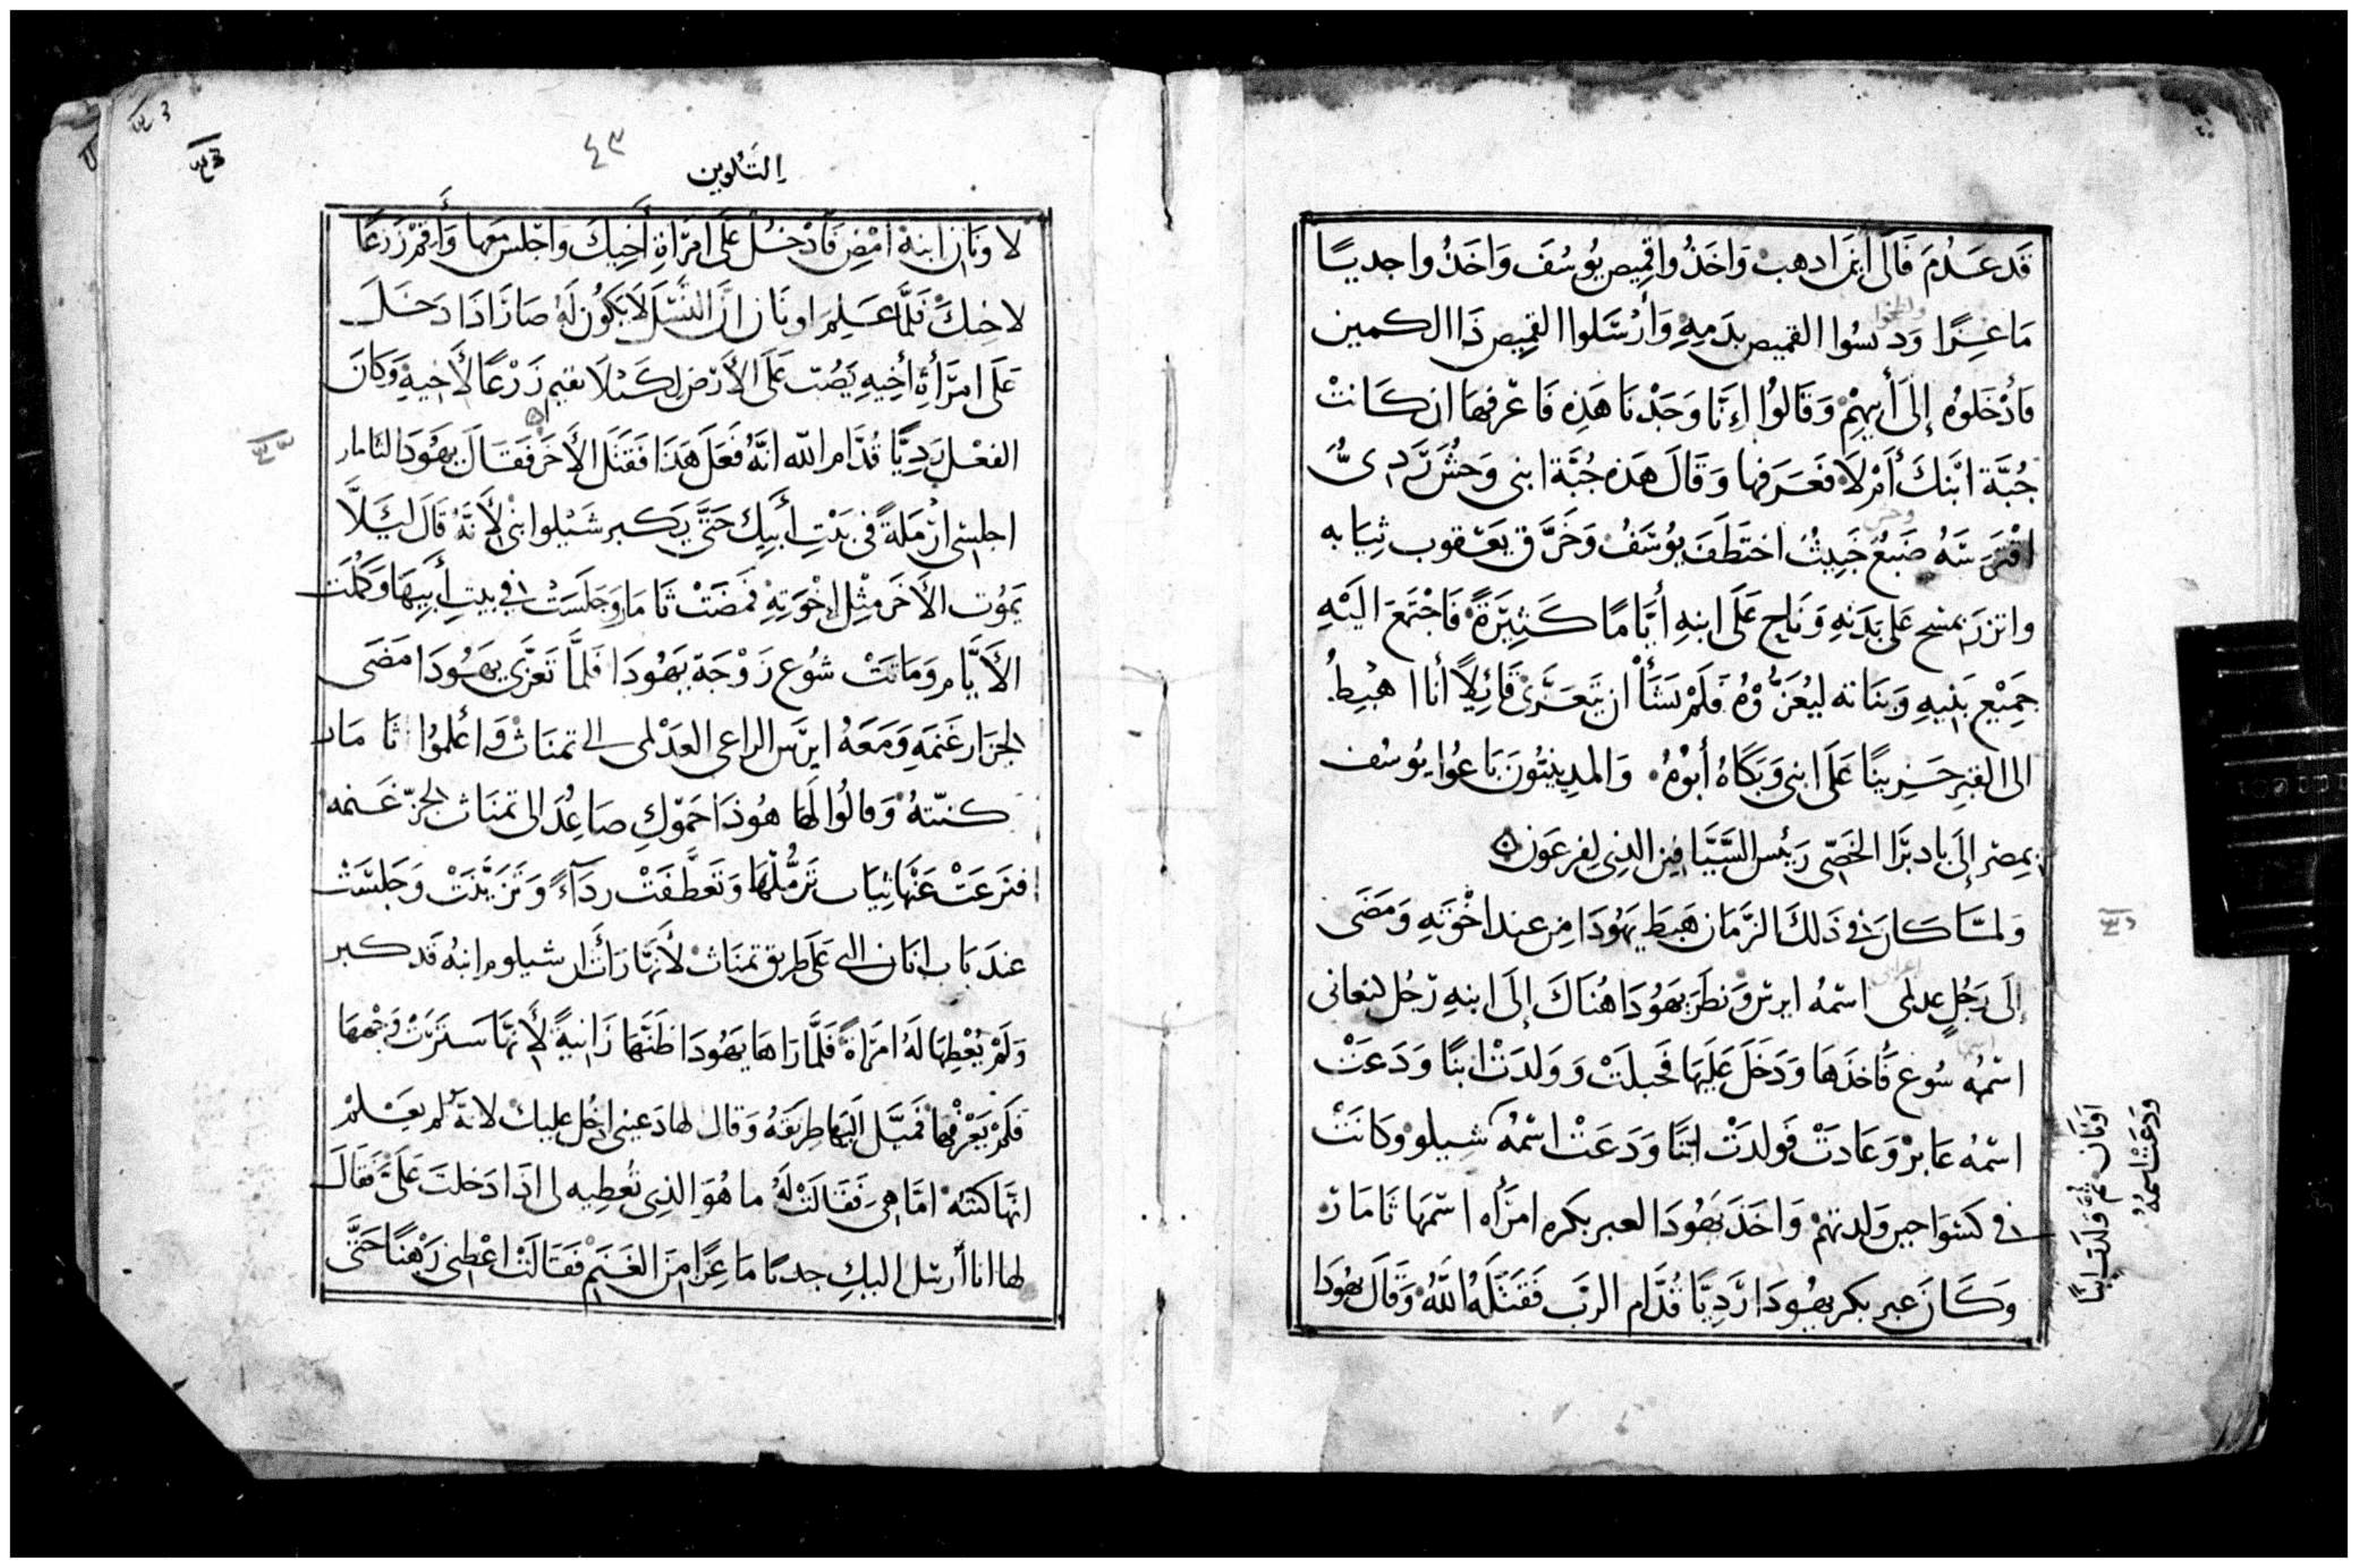 قَد عَدُمَ فَالَى اَيْنَ اذهب وَاخَذُوا قِميص يُوسُفَ وَاخَذُوا جديًا
مَاعِزًا وَدسُوا القميص بدَمِهِ وَأرْسَلوا القميص ذَا الكمين
فَأدْخَلوُه إلى أبيهِمْ وَقَالوُا اِنَّا وَجَدْنَا هَذِه فَاعْرفهَا ان كَانتْ
جُبَّة ابْنكَ أمْ لَا فَعَرَفها وَقَالَ هَذِه جُبَّة ابنى وَحشٌ رَدِىٌّ
افْتَرسَهُ ضَبعٌ خَبِيثٌ اختَطَفَ يوُسُفُ وَخَرَّق يَعْقوب ثِيَابه
واتزرَ بمسْح عَلى بَدَنِهِ وَنَاح عَلَى ابنهِ أيَّامًا كَثِيرَةً فَاجْتَمَعَ اليْهِ
جَمِيْع بَنِيهِ وَبَنَاته ليُعَزُّوْهُ فَلَمْ يَشَأْ ان يَتَعَزَّىْ قَائِلًا أنا اهْبِطُ
الى القبر حَزِينًا عَلَى ابنى وَبَكَاهُ أبوُهُ وَالمدِينيُّونَ بَاعوُا يُوسُف
بمِصْرَ إلَى بادبرَّا الخَصّى رَئِيس السَّيَّافين الذِى لِفرعَون
وَلمّا كَان فى ذَلكَ الزَّمَان هَبَطَ يَهُودَا مِن عند اخْوَتِهِ وَمَضَى
إلَى رَجُلٍ عدلمى اسْمهُ ايرس وَنظَرَ يَهُودَا هُنَاكَ إلَى ابنهِ رَجُل كنعانى
اسْمُه سُوع فَأخذَهَا وَدَخَلَ عَليهَا فَحبلَتْ وَوَلدَتْ ابنًا وَدَعَتْ
اسْمُه عَابرْ وَعَادَتْ فَولدَتْ ابنًا وَدَعَتْ اسْمُه شِيلو وَكَانَتْ
فى كشوَا حين وَلدتهمْ وَاخَذَ يَهُودَا لعير بكره امرَأه اسْمهَا ثَامَارْ
وَكَانَ عير بكر يهُودَا رَدِيًّا قُدَّام الربْ فَقتَلَهُ اللهُ وَقَالَ يهُودَا
ودَعَتْ اسمهُ
اونان ثُمَّ وَلدَت ابنًا
التكوين
٤٣
لاونَان ابنهْ امْضِ فَأدْخُلْ عَلَى امْرَأةِ أَخِيكَ وَاجْلسْ مَعهَا وَأَقمْ زَرعًا
لاخِيكَ فَلَّمَا عَلِمَ اونَان انَّ النَّسْل لَا يَكُون لَهُ صَارَ اذَا دَخَلَ
عَلَى امْرَأةِ أخِيهِ يَصُبّ عَلَى الأرْض لكَيْلَا يقيم زَرْعًا لأخيهِ وَكَانَ
الفعْل رَدِيًّا قُدَّام الله انَّهُ فَعَلَ هَذَا فَقَتَل الأخَر فَقَالَ يَهُودَا لثامار
اجلسى ارْمَلةً فى بَيْتِ أبيكِ حَتَّى يَكبر شَيْلوا بنى لأنَّهُ قَالَ ليَلَّا
يَموُت الأخَر مثْل اخْوَتِهِ فَمَضَتْ ثَامَار وَجَلَسَتْ فى بيتِ أبيهَا وَكمُلَت
الأيَّام وَمَاتَتْ شوُع زَوْجَة يَهُودَا فَلمَّا تَعزَّى يَهُودَا مَضَى
لجزار غَنَمِهِ وَمَعَهُ ايرَس الراعى العَدْلمى الى تمنَاث وَأعْلموُا ثَامَار
كنتهُ وَقالوُا لهَا هُوذَا حَموْكِ صَاعِدُ الى تمنَاث لجزّ غَنمه
فنَزعَتْ عَنْهَا ثِيَاب تَرَمُّلهَا وَتَعَطَّفَتْ ردَآءً وَتَزَيَّنَتْ وَجَلسَتْ
عندَ بَاب انَان الى عَلَى طريق تمنَاث لأنهَّا رَاتْ ان شيلوم ابنهُ قَد كبر
وَلَمْ يُعْطِهَا لَهُ امرَاةً فَلمَّا رَاهَا يَهُودَا ظَنَّهَا زَانِيةً لأنهَّا سَترَتْ وَجْهَهَا
فَلَمْ يَعْرفْهَا فَميَّل اليهَا طريقَهُ وَقال لها دَعينى ادخُل عليك لانهُ لم يعَلمْ
انهَّا كنتهُ امَّا هىَ فَقَالتْ لهُ ما هُوَ الذِى تُعطِيه لى اذَا دَخلتَ عَلَىَّ فَقَالَ
لها انا أرسل اليكِ جديًا مَاعِزًا مِنَ الغَنَمِ فَقَالَتْ اعْطِنى رَهْنًا حَتَّى